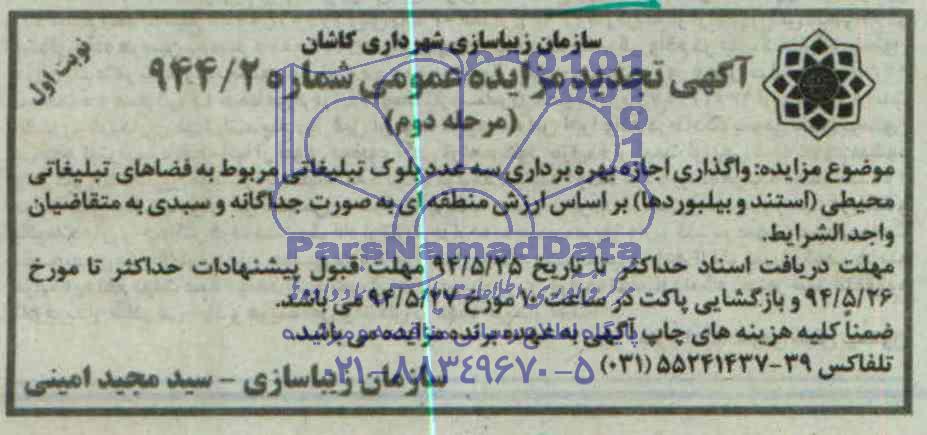 سازمان زیباسازی شهرداری کاشان
آگهی تجدید مزایده عمومی شماره ۹۴۴/۲
(مرحله دوم)
نوبت اول
موضوع مزایده: واگذاری اجازه بهره برداری سه عدد بلوک تبلیغاتی مربوط به فضاهای تبلیغاتی
محیطی (استند و بیلبوردها) بر اساس ارزش منطقه ای به صورت جداگانه و سبدی به متقاضیان
واجد الشرایط.
مهلت دریافت اسناد حداکثر تا تاریخ ۹۴/۵/۲۵ مهلت قبول پیشنهادات حداکثر تا مورخ
۹۴/۵/۲۶ و بازگشایی پاکت در ساعت ۱۰ مورخ ۹۴/۵/۲۷ می باشد.
ضمناً کلیه هزینه های چاپ آگهی به عهده برنده مزایده می باشد.
تلفاکس ۳۹-۵۵۲۴۱۴۳۷ (۰۳۱)
سازمان زیباسازی - سید مجید امینی
ParsNamadData
۰۲۱-۸۸۳۴۹۶۷۰-۵